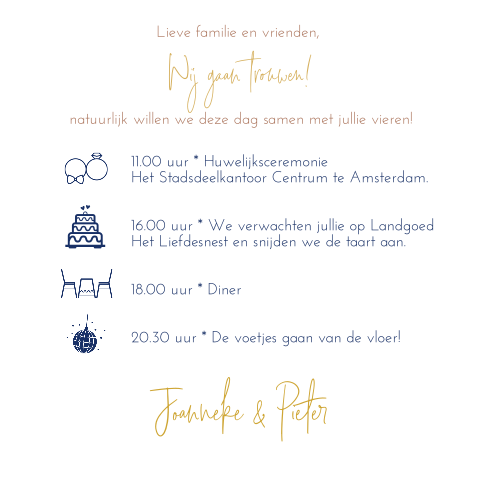 Lieve familie en vrienden,
Wij gaan trouwen!
natuurlijk willen we deze dag samen met jullie vieren!
11.00 uur * Huwelijksceremonie
Het Stadsdeelkantoor Centrum te Amsterdam.
16.00 uur * We verwachten jullie op Landgoed
Het Liefdesnest en snijden we de taart aan.
18.00 uur * Diner
20.30 uur * De voetjes gaan van de vloer!
Joanneke & Pieter